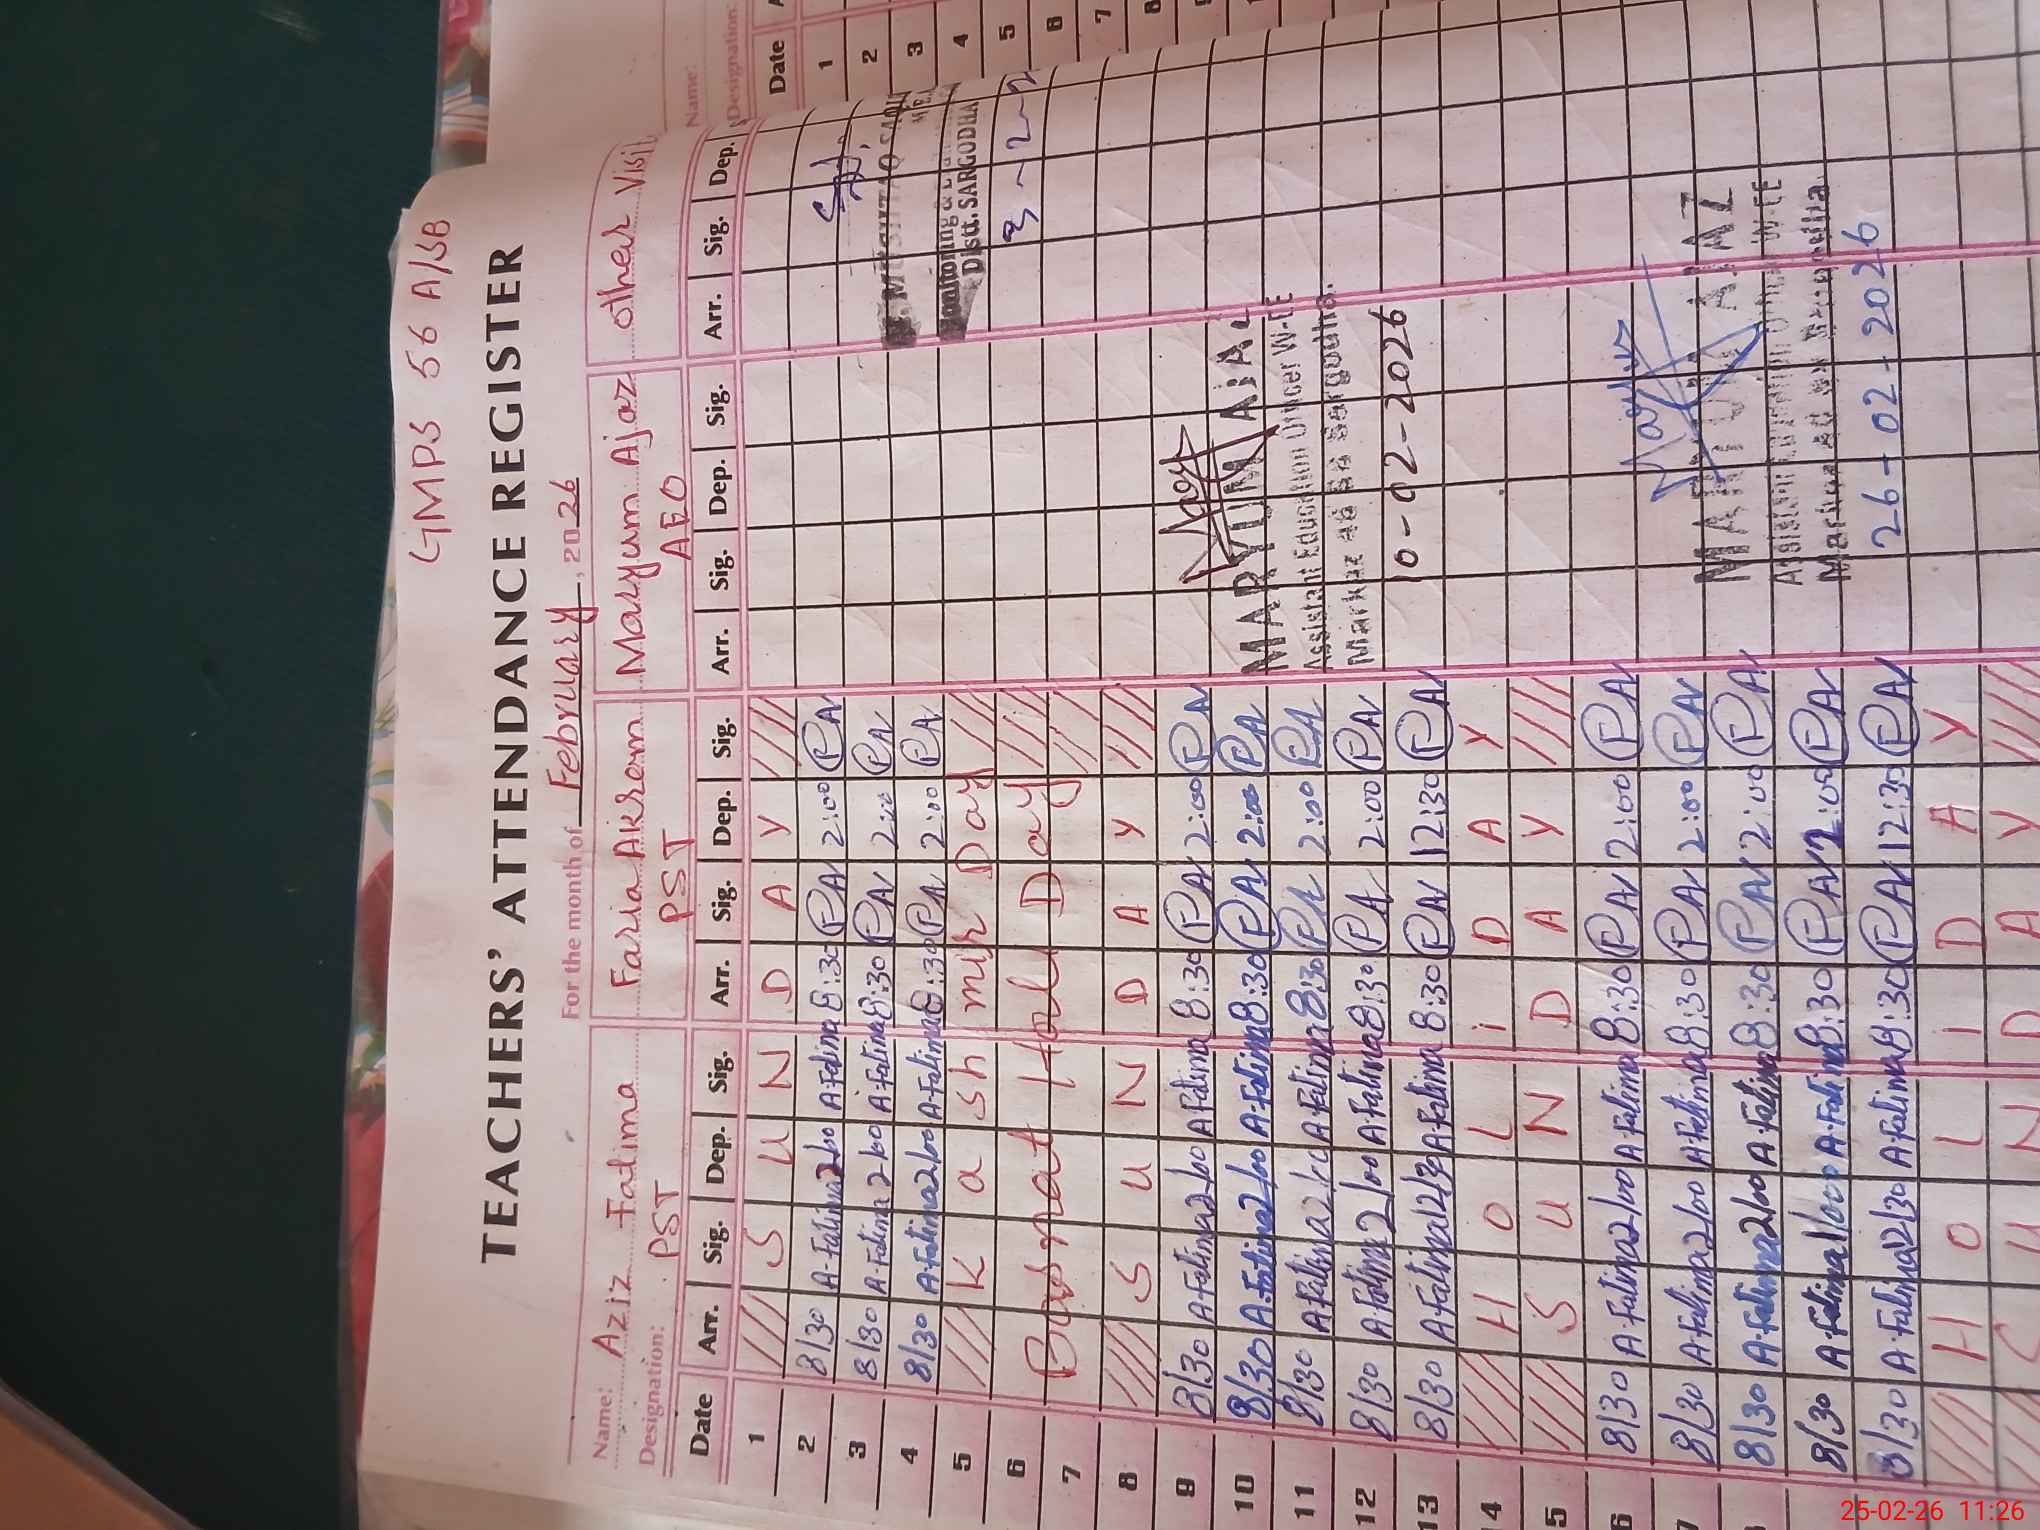 GMPS 56 A/SB
TEACHERS' ATTENDANCE REGISTER
For the month of February, 2026
Name: Aziz Fatima Faria Akram Maryum Ajaz other Visit
Designation: PST PST AEO
Date Arr. Sig. Dep. Sig. Arr. Sig. Dep. Sig. Arr. Sig. Dep. Sig. Arr. Sig. Dep.
1 S U N D A Y
2 8/30 A.Fatima 2/00 A.Fatima 8:30 PA 2:00 PA
3 8/30 A.Fatima 2/00 A.Fatima 8:30 PA 2:00 PA
4 8/30 A.Fatima 2/00 A.Fatima 8:30 PA 2:00 PA
5 K a sh mir Day
6 Basnat Holi Day
7
8 S U N D A Y
9 8/30 A.Fatima 2/00 A.Fatima 8:30 PA 2:00 PA
10 8/30 A.Fatima 2/00 A.Fatima 8:30 PA 2:00 PA
11 8/30 A.Fatima 2/00 A.Fatima 8:30 PA 2:00 PA
12 8/30 A.Fatima 2/00 A.Fatima 8:30 PA 2:00 PA
13 8/30 A.Fatima 12/30 A.Fatima 8:30 PA 12:30 PA
14 H O L I D A Y
5 S U N D A Y
6 8/30 A.Fatima 2/00 A.Fatima 8:30 PA 2:00 PA
7 8/30 A.Fatima 2/00 A.Fatima 8:30 PA 2:00 PA
8/30 A.Fatima 2/00 A.Fatima 8:30 PA 2:00 PA
8/30 A.Fatima 1/000 A.Fatima 8:30 PA 2:00 PA
8/30 A.Fatima 12/30 A.Fatima 8:30 PA 12:30 PA
H O L I D A Y
S U N D A Y
MUSHTAQ
Monitoring &
Distt. SARGODHA
3-2-2
MARYUM AJAZ
Assistant Education Officer W-EE
Markaz Sargodha.
10-02-2026
MARYUM AJAZ
Assistant Education Officer W-EE
Markaz
26-02-2026
Name:
Designation:
Date
1
2
3
4
5
6
7
8
25-02-26 11:26